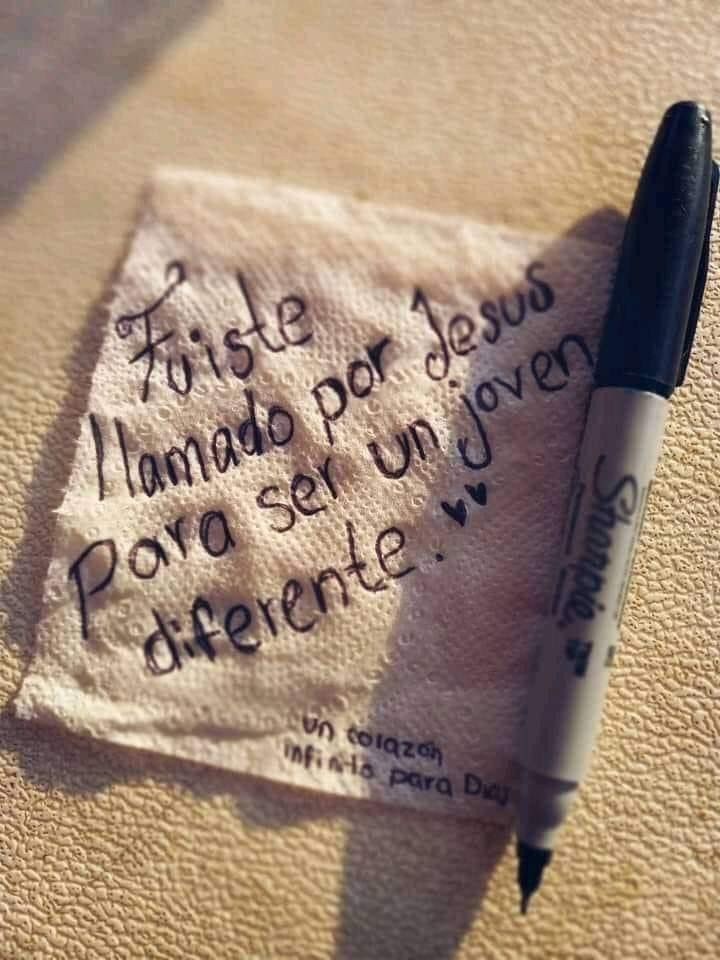 Fuiste
llamado por Jesus
para ser un joven
diferente.
un corazón
infinito para Dios
Sharpie